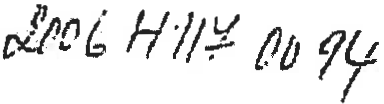 2006 H 117 00 94